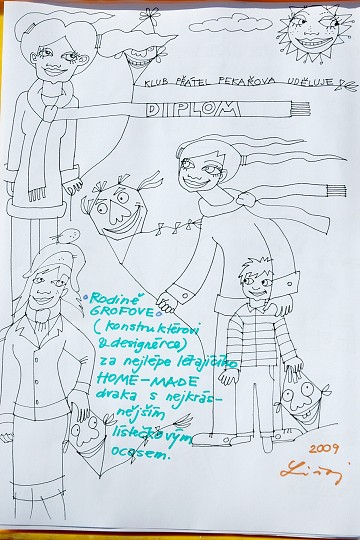 KLUB PŘÁTEL PEKAŘOVA UDĚLUJE
DIPLOM
Rodině
GROFOVE
(konstruktérovi
& designérce)
za nejlépe létajícího
HOME-MADE
draka s nejkrás-
nějším
lístečkovým
ocasem.
2009